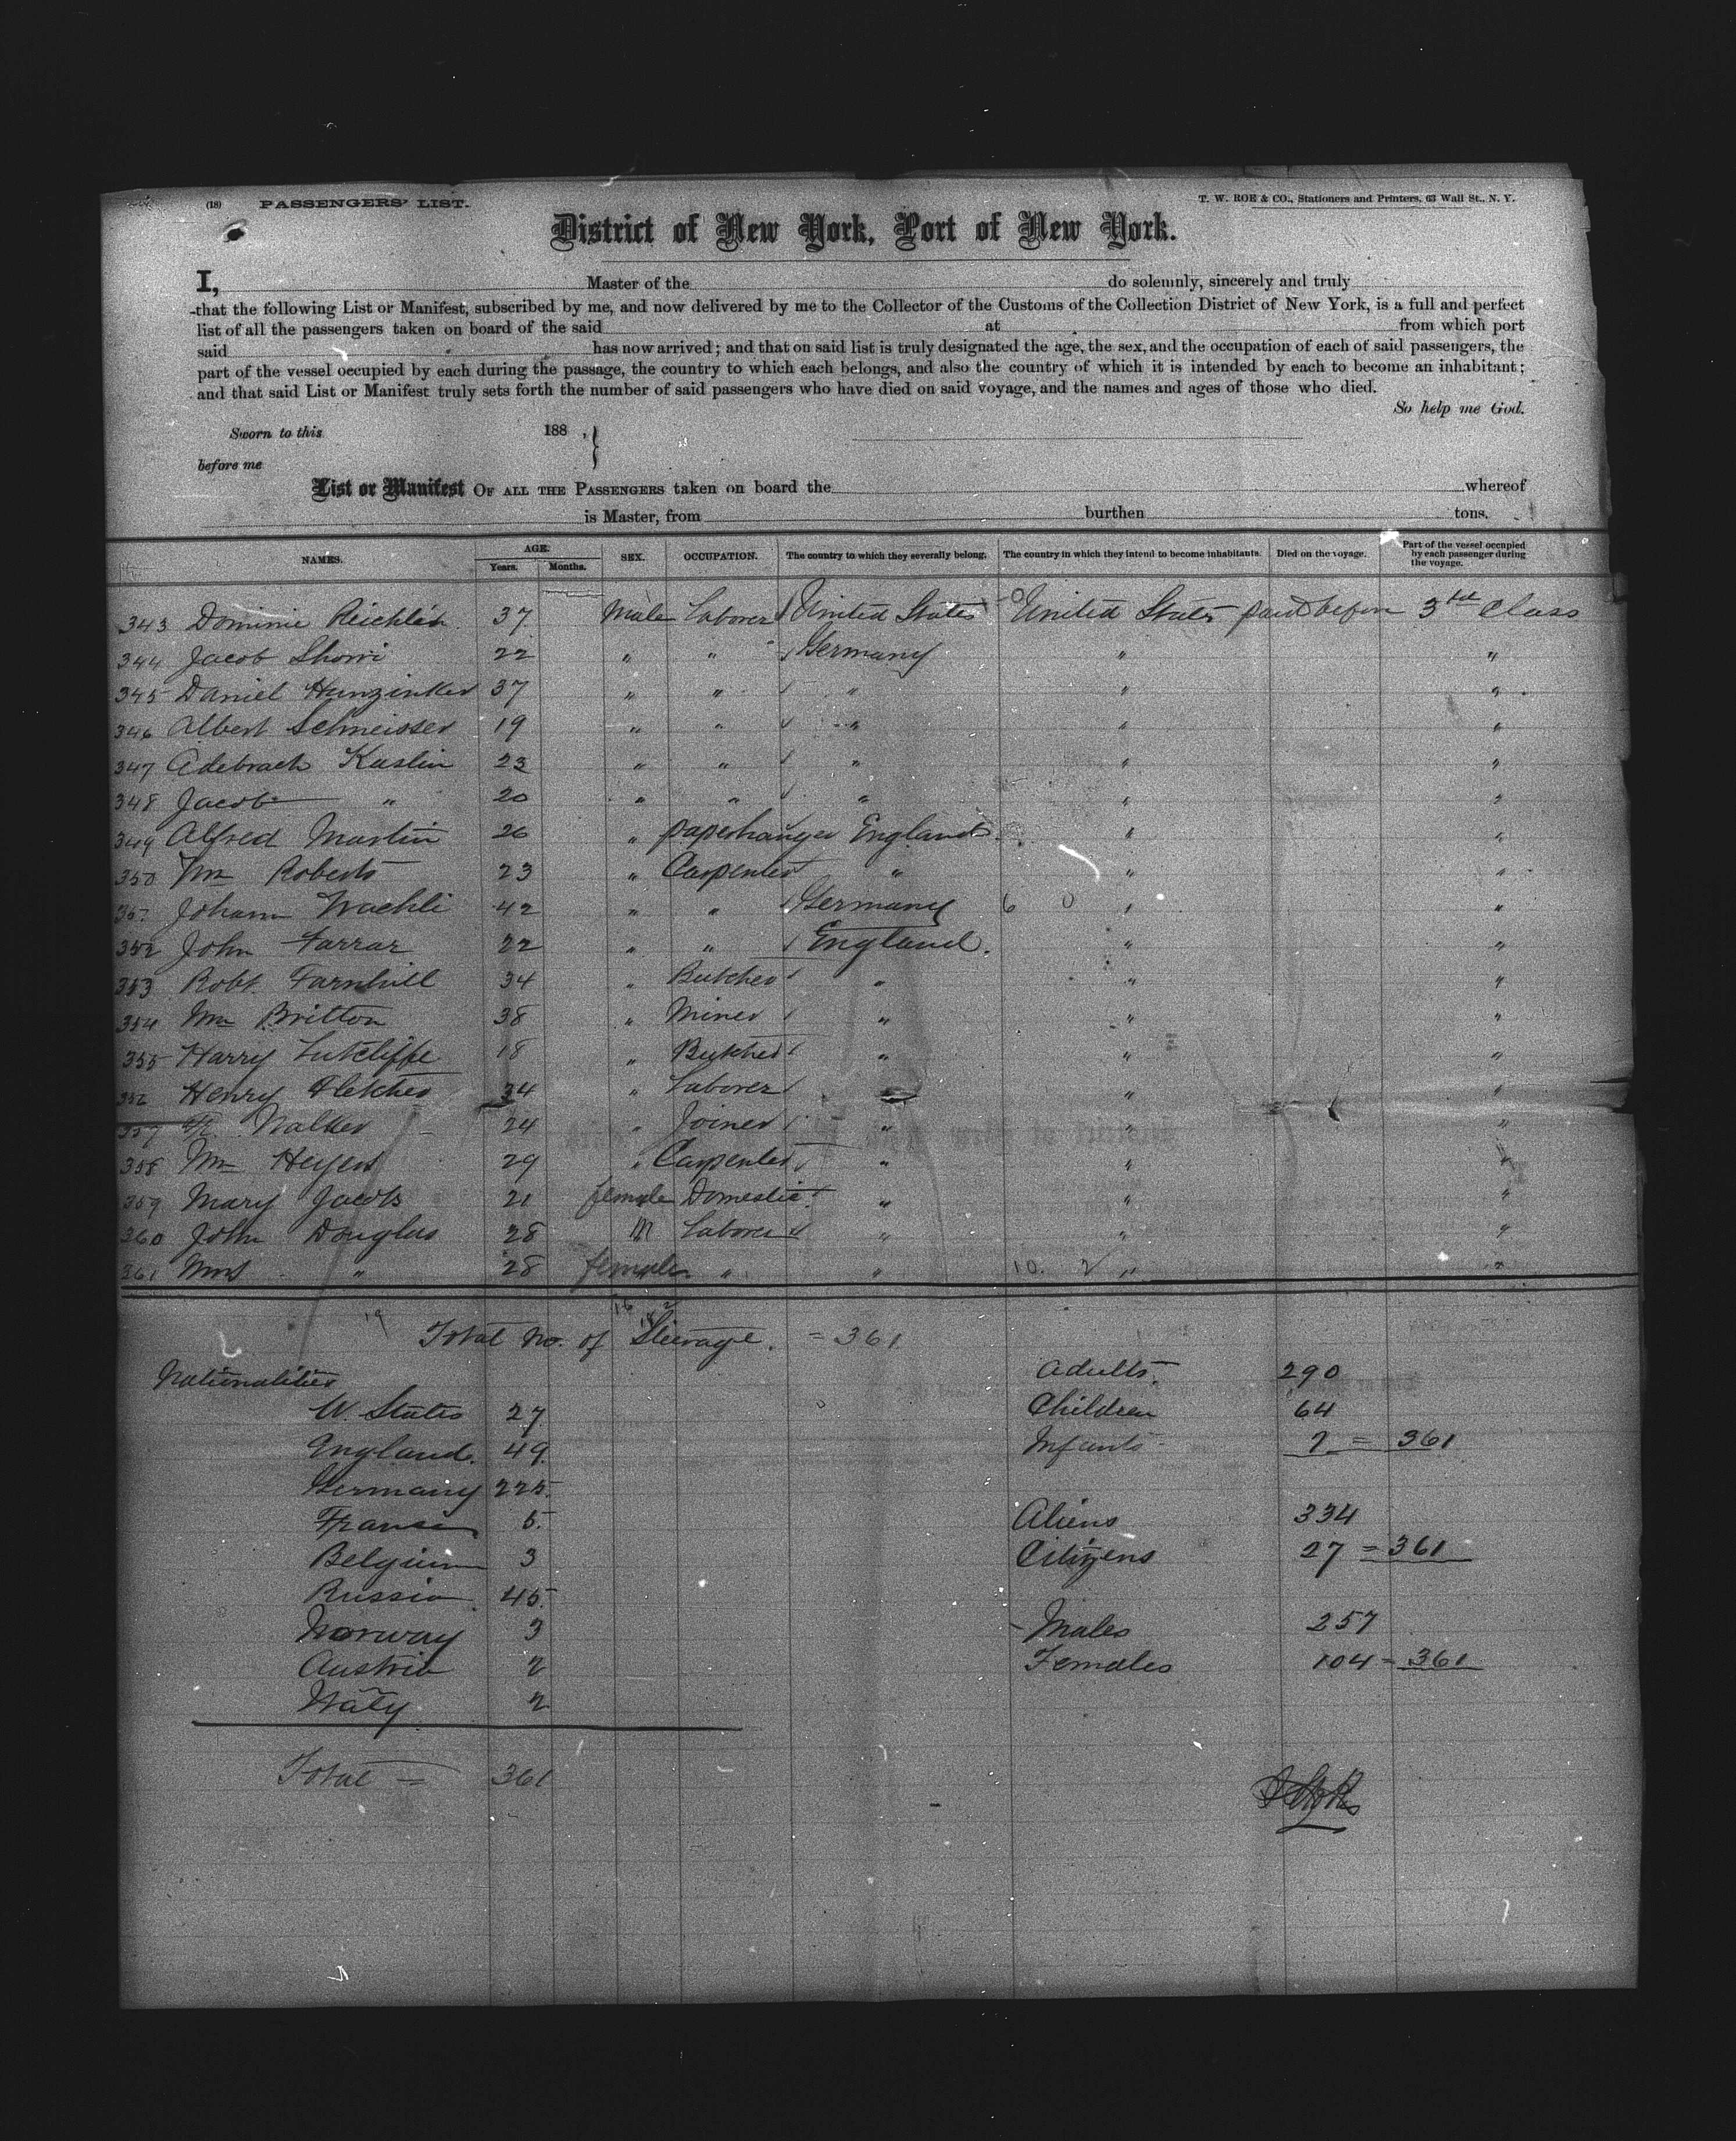 (18) PASSENGERS' LIST.
T. W. ROE & CO., Stationers and Printers, 63 Wall St., N. Y.
District of New York, Port of New York.
I, Master of the do solemnly, sincerely and truly
that the following List or Manifest, subscribed by me, and now delivered by me to the Collector of the Customs of the Collection District of New York, is a full and perfect
list of all the passengers taken on board of the said at from which port
said has now arrived; and that on said list is truly designated the age, the sex, and the occupation of each of said passengers, the
part of the vessel occupied by each during the passage, the country to which each belongs, and also the country of which it is intended by each to become an inhabitant;
and that said List or Manifest truly sets forth the number of said passengers who have died on said voyage, and the names and ages of those who died.
So help me God.
Sworn to this 188 ,
before me
List or Manifest OF ALL THE PASSENGERS taken on board the whereof
is Master, from burthen tons.
NAMES. AGE. Years. Months. SEX. OCCUPATION. The country to which they severally belong. The country in which they intend to become inhabitants. Died on the voyage. Part of the vessel occupied by each passenger during the voyage.
343 Dominic Reichlin 37 Male Laborer United States United States 3rd Class
344 Jacob 22 " " Germany " "
345 Daniel Hunzinker 37 " " " " "
346 Albert Schmeisser 19 " " " " "
347 Kaslin 23 " " " " "
348 Jacob " 20 " " " " "
349 Alfred Martin 26 " paperhanger England " "
350 Wm Roberts 23 " Carpenter " " "
351 Johann Waehli 42 " " Germany 6 0 " "
352 John Farrar 22 " " England. " "
353 Robt. Farnhill 34 " Butcher " " "
354 Wm Britton 38 " Miner " " "
355 Harry Sutcliffe 18 " Butcher " " "
356 Henry Fletcher 34 " Laborer " " "
357 Walker 24 " Joiner " " "
358 Wm Heyes 29 " Carpenter " " "
359 Mary Jacobs 21 female Domestic " " "
360 John Douglas 28 M Laborer " " "
361 Mrs " 28 female " " 10. 2 " "
19 16 2
Total No. of Steerage. = 361
Nationalities
Adults. 290
U. States 27
Children 64
England. 49
Infants 7 = 361
Germany 225
France 5
Aliens 334
Belgium 3
Citizens 27 = 361
Russia 45
Norway 3
Males 257
Austria 2
Females 104 = 361
Italy 2
Total = 361